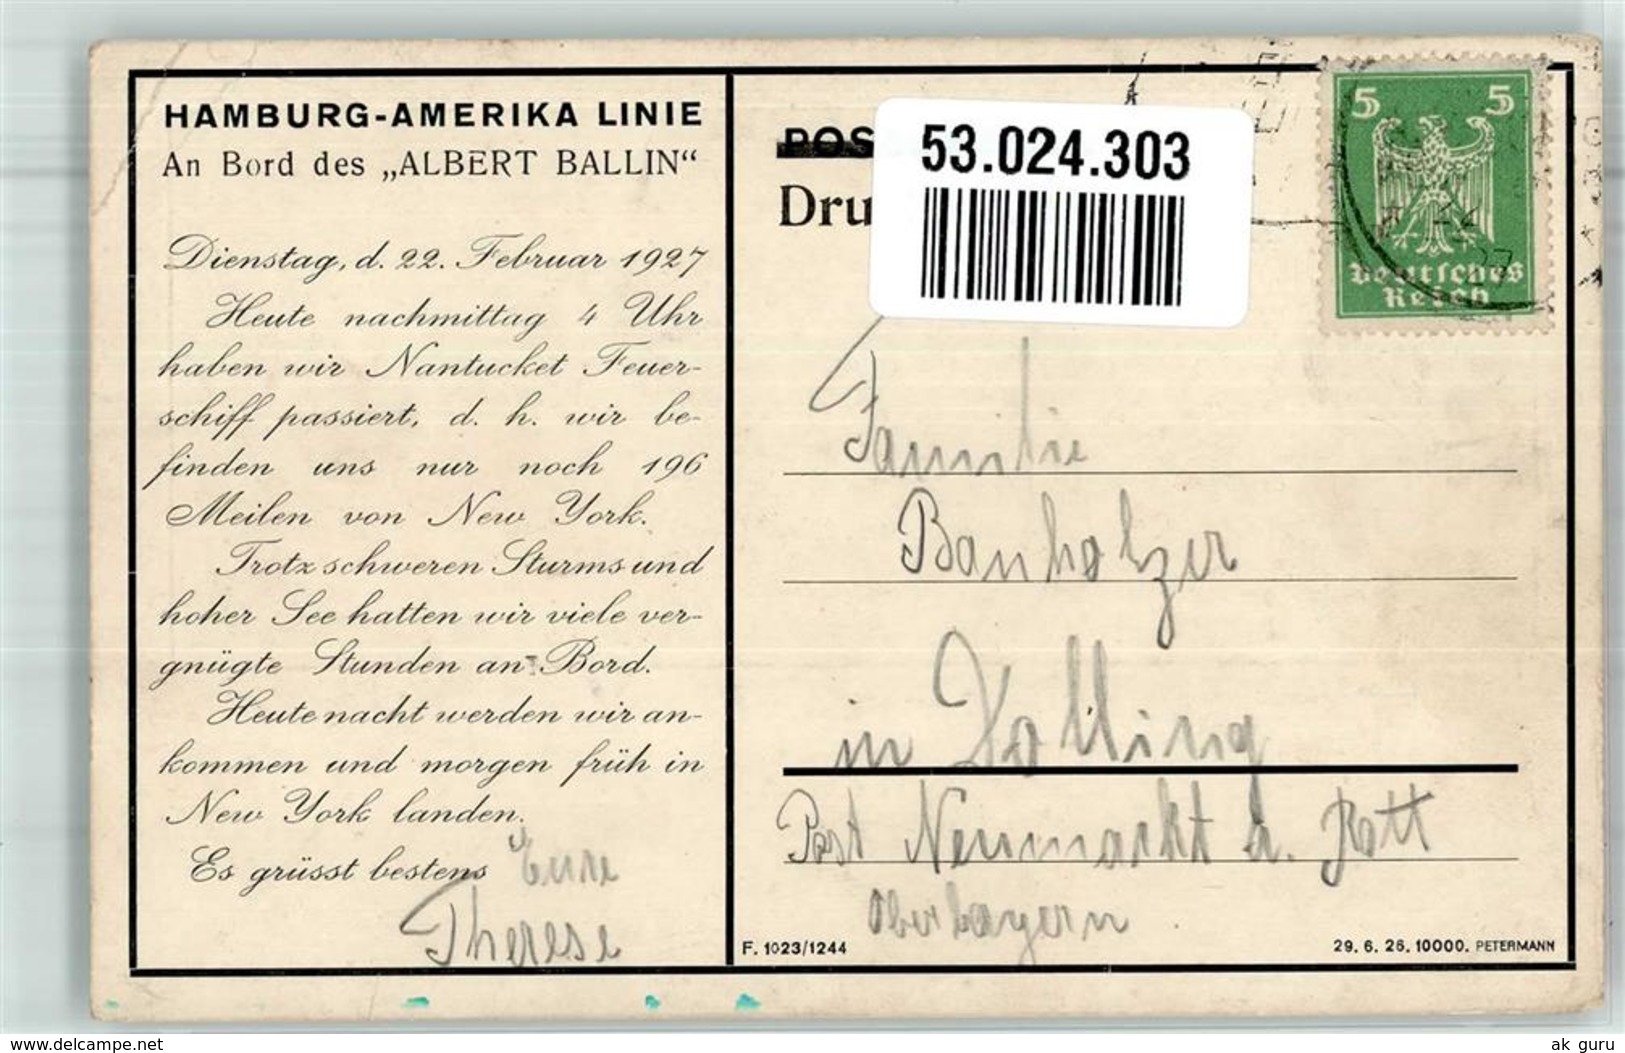 HAMBURG-AMERIKA LINIE
An Bord des „ALBERT BALLIN“
Dienstag, d. 22. Februar 1927
Heute nachmittag 4 Uhr
haben wir Nantucket Feuer-
schiff passiert, d. h. wir be-
finden uns nur noch 196
Meilen von New York.
Trotz schweren Sturms und
hoher See hatten wir viele ver-
gnügte Stunden an Bord.
Heute nacht werden wir an-
kommen und morgen früh in
New York landen.
Es grüsst bestens Eure
Therese
POS
Dru
53.024.303
5 5
Deutsches
Reich
27
Familie
Banholzer
in Lolling
Post Neumarkt a. Rott
Oberbayern
F. 1023/1244
29. 6. 26. 10000. PETERMANN
delcampe.net
ak_guru